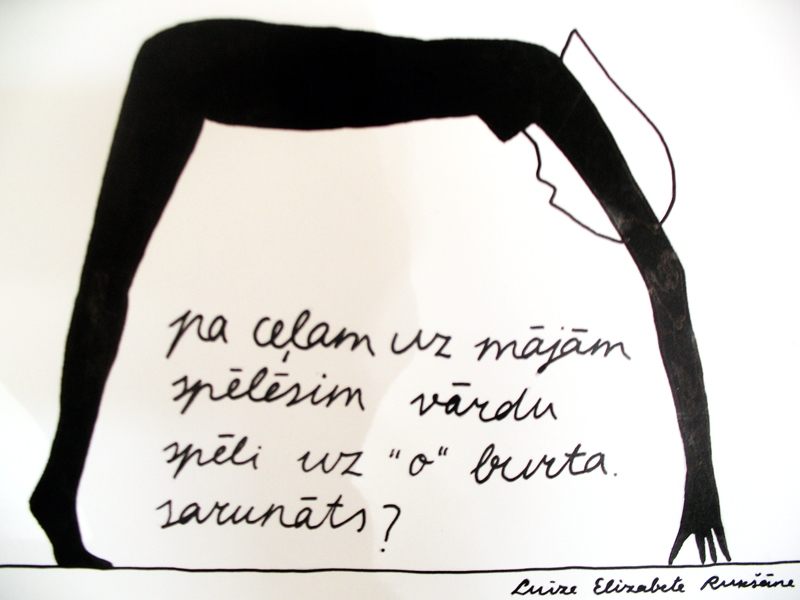 pa ceļam uz mājām
spēlēsim vārdu
spēli uz "o" burta.
sarunāts?
Luīze Elizabete Rukšāne